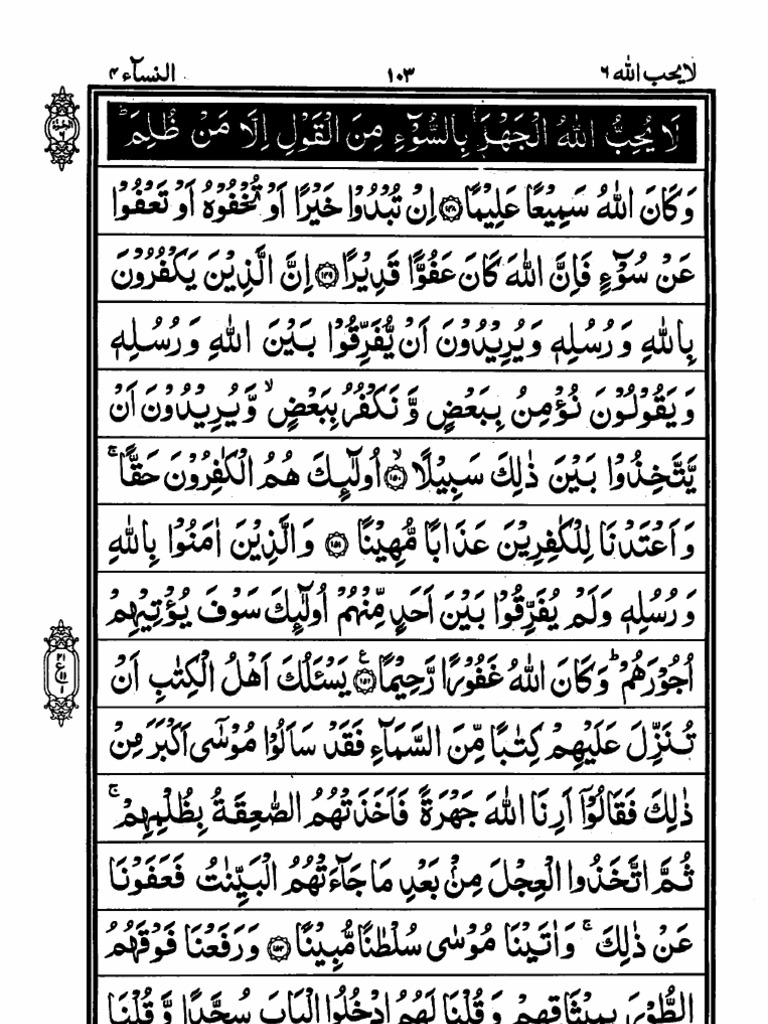 لا يحب الله ٦ ١٠٣ النسآء ٤
لَا يُحِبُّ اللّٰهُ الْجَهْرَ بِالسُّوْٓءِ مِنَ الْقَوْلِ اِلَّا مَنْ ظُلِمَ ؕ
وَكَانَ اللّٰهُ سَمِيْعًا عَلِيْمًا ﴿۱۴۸﴾ اِنْ تُبْدُوْا خَيْرًا اَوْ تُخْفُوْهُ اَوْ تَعْفُوْا
عَنْ سُوْٓءٍ فَاِنَّ اللّٰهَ كَانَ عَفُوًّا قَدِيْرًا ﴿۱۴۹﴾ اِنَّ الَّذِيْنَ يَكْفُرُوْنَ
بِاللّٰهِ وَرُسُلِهٖ وَيُرِيْدُوْنَ اَنْ يُّفَرِّقُوْا بَيْنَ اللّٰهِ وَرُسُلِهٖ
وَيَقُوْلُوْنَ نُؤْمِنُ بِبَعْضٍ وَّنَكْفُرُ بِبَعْضٍ ۙ وَّيُرِيْدُوْنَ اَنْ
يَّتَّخِذُوْا بَيْنَ ذٰلِكَ سَبِيْلًا ۙ﴿۱۵۰﴾ اُولٰٓئِكَ هُمُ الْكٰفِرُوْنَ حَقًّا ۚ
وَاَعْتَدْنَا لِلْكٰفِرِيْنَ عَذَابًا مُّهِيْنًا ﴿۱۵۱﴾ وَالَّذِيْنَ اٰمَنُوْا بِاللّٰهِ
وَرُسُلِهٖ وَلَمْ يُفَرِّقُوْا بَيْنَ اَحَدٍ مِّنْهُمْ اُولٰٓئِكَ سَوْفَ يُؤْتِيْهِمْ
اُجُوْرَهُمْ ؕ وَكَانَ اللّٰهُ غَفُوْرًا رَّحِيْمًا ﴿۱۵۲﴾ ع يَسْـَٔلُكَ اَهْلُ الْكِتٰبِ اَنْ
تُنَزِّلَ عَلَيْهِمْ كِتٰبًا مِّنَ السَّمَآءِ فَقَدْ سَاَلُوْا مُوْسٰٓى اَكْبَرَ مِنْ
ذٰلِكَ فَقَالُوْٓا اَرِنَا اللّٰهَ جَهْرَةً فَاَخَذَتْهُمُ الصّٰعِقَةُ بِظُلْمِهِمْ ۚ
ثُمَّ اتَّخَذُوا الْعِجْلَ مِنْۢ بَعْدِ مَا جَآءَتْهُمُ الْبَيِّنٰتُ فَعَفَوْنَا
عَنْ ذٰلِكَ ۚ وَاٰتَيْنَا مُوْسٰى سُلْطٰنًا مُّبِيْنًا ﴿۱۵۳﴾ وَرَفَعْنَا فَوْقَهُمُ
الطُّوْرَ بِمِيْثَاقِهِمْ وَقُلْنَا لَهُمُ ادْخُلُوا الْبَابَ سُجَّدًا وَّقُلْنَا